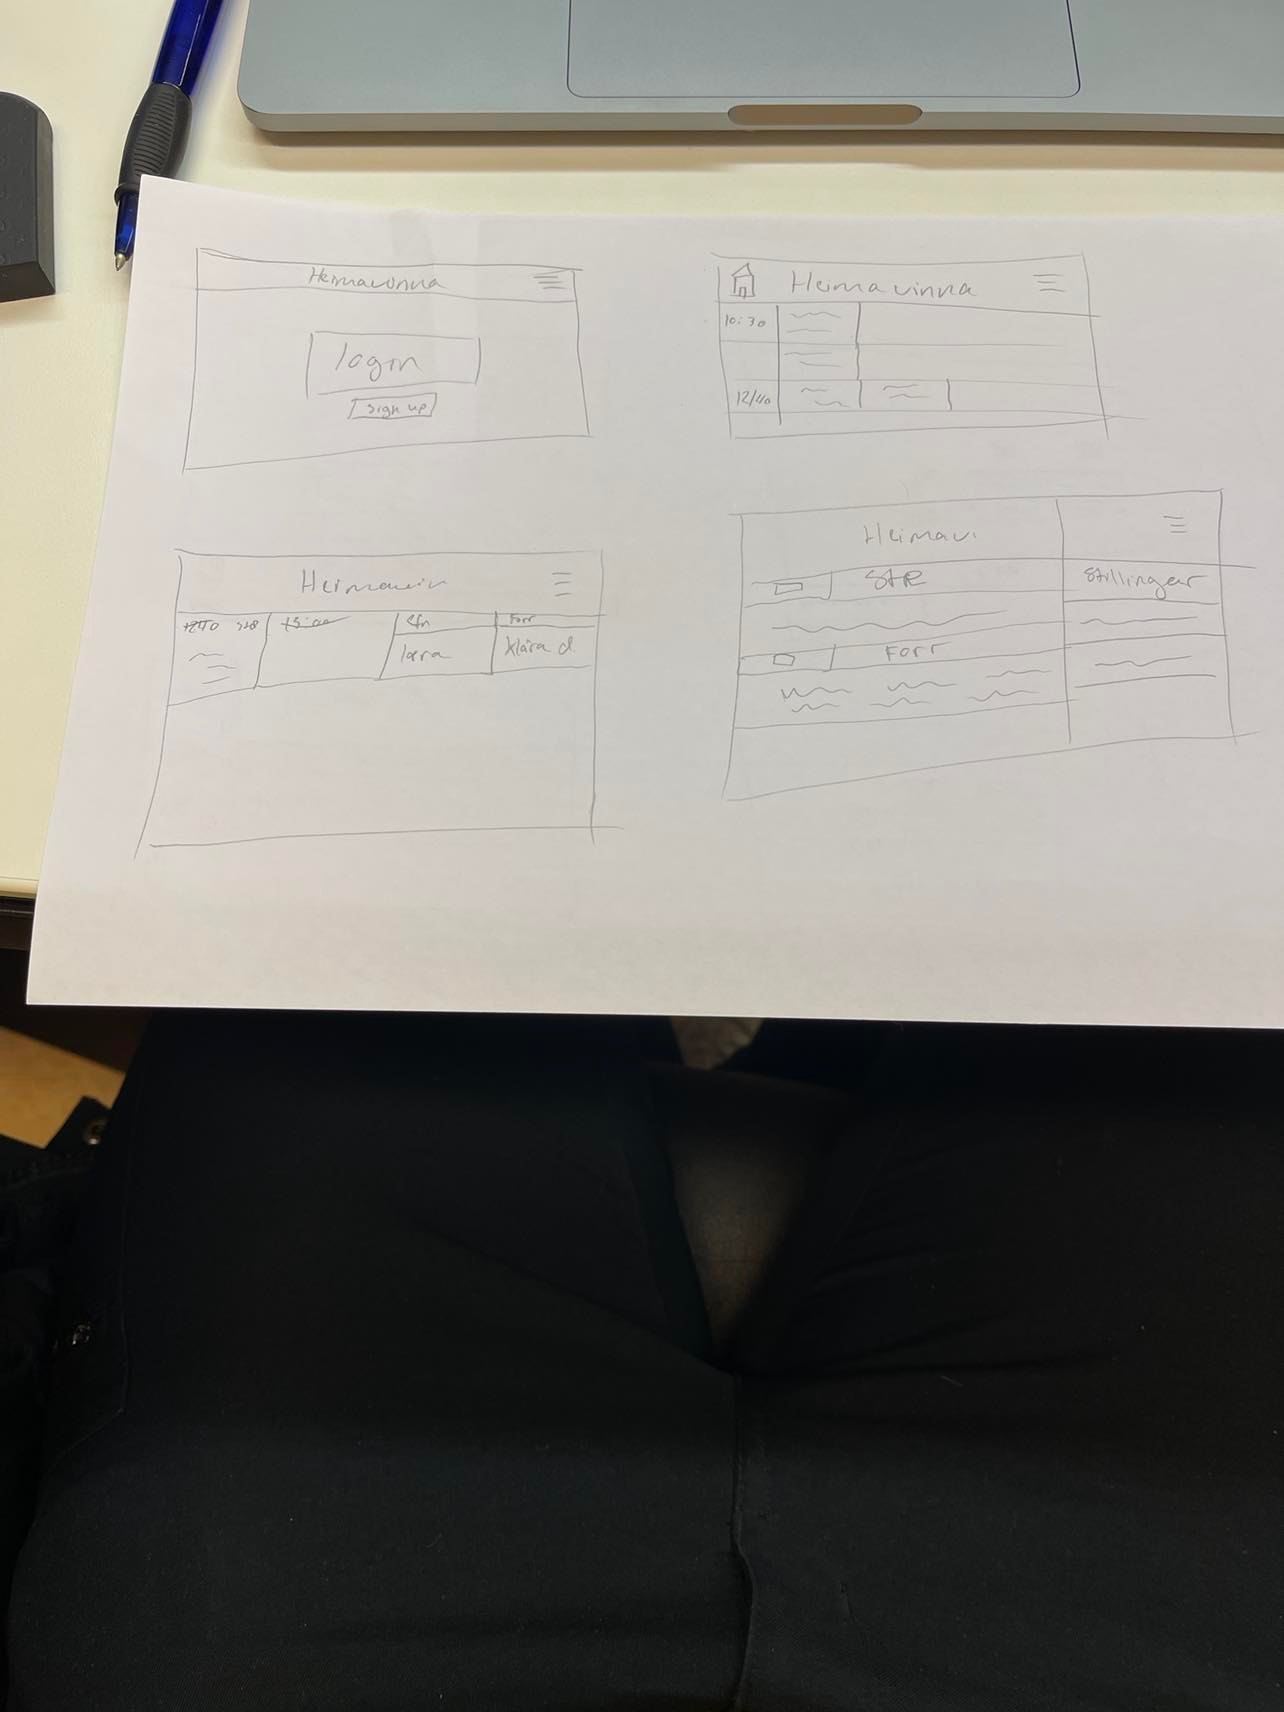 Heimavinna
login
sign up
Heimavinna
10:30
12/40
Heimavin
lara
Forr
klára d.
Heimav.
Stillingar
Forr